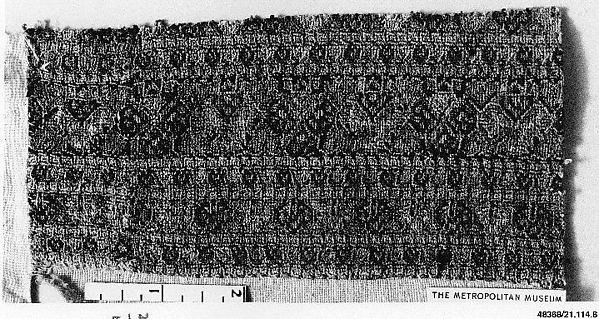 1 2
THE METROPOLITAN MUSEUM
48388/21.114.8